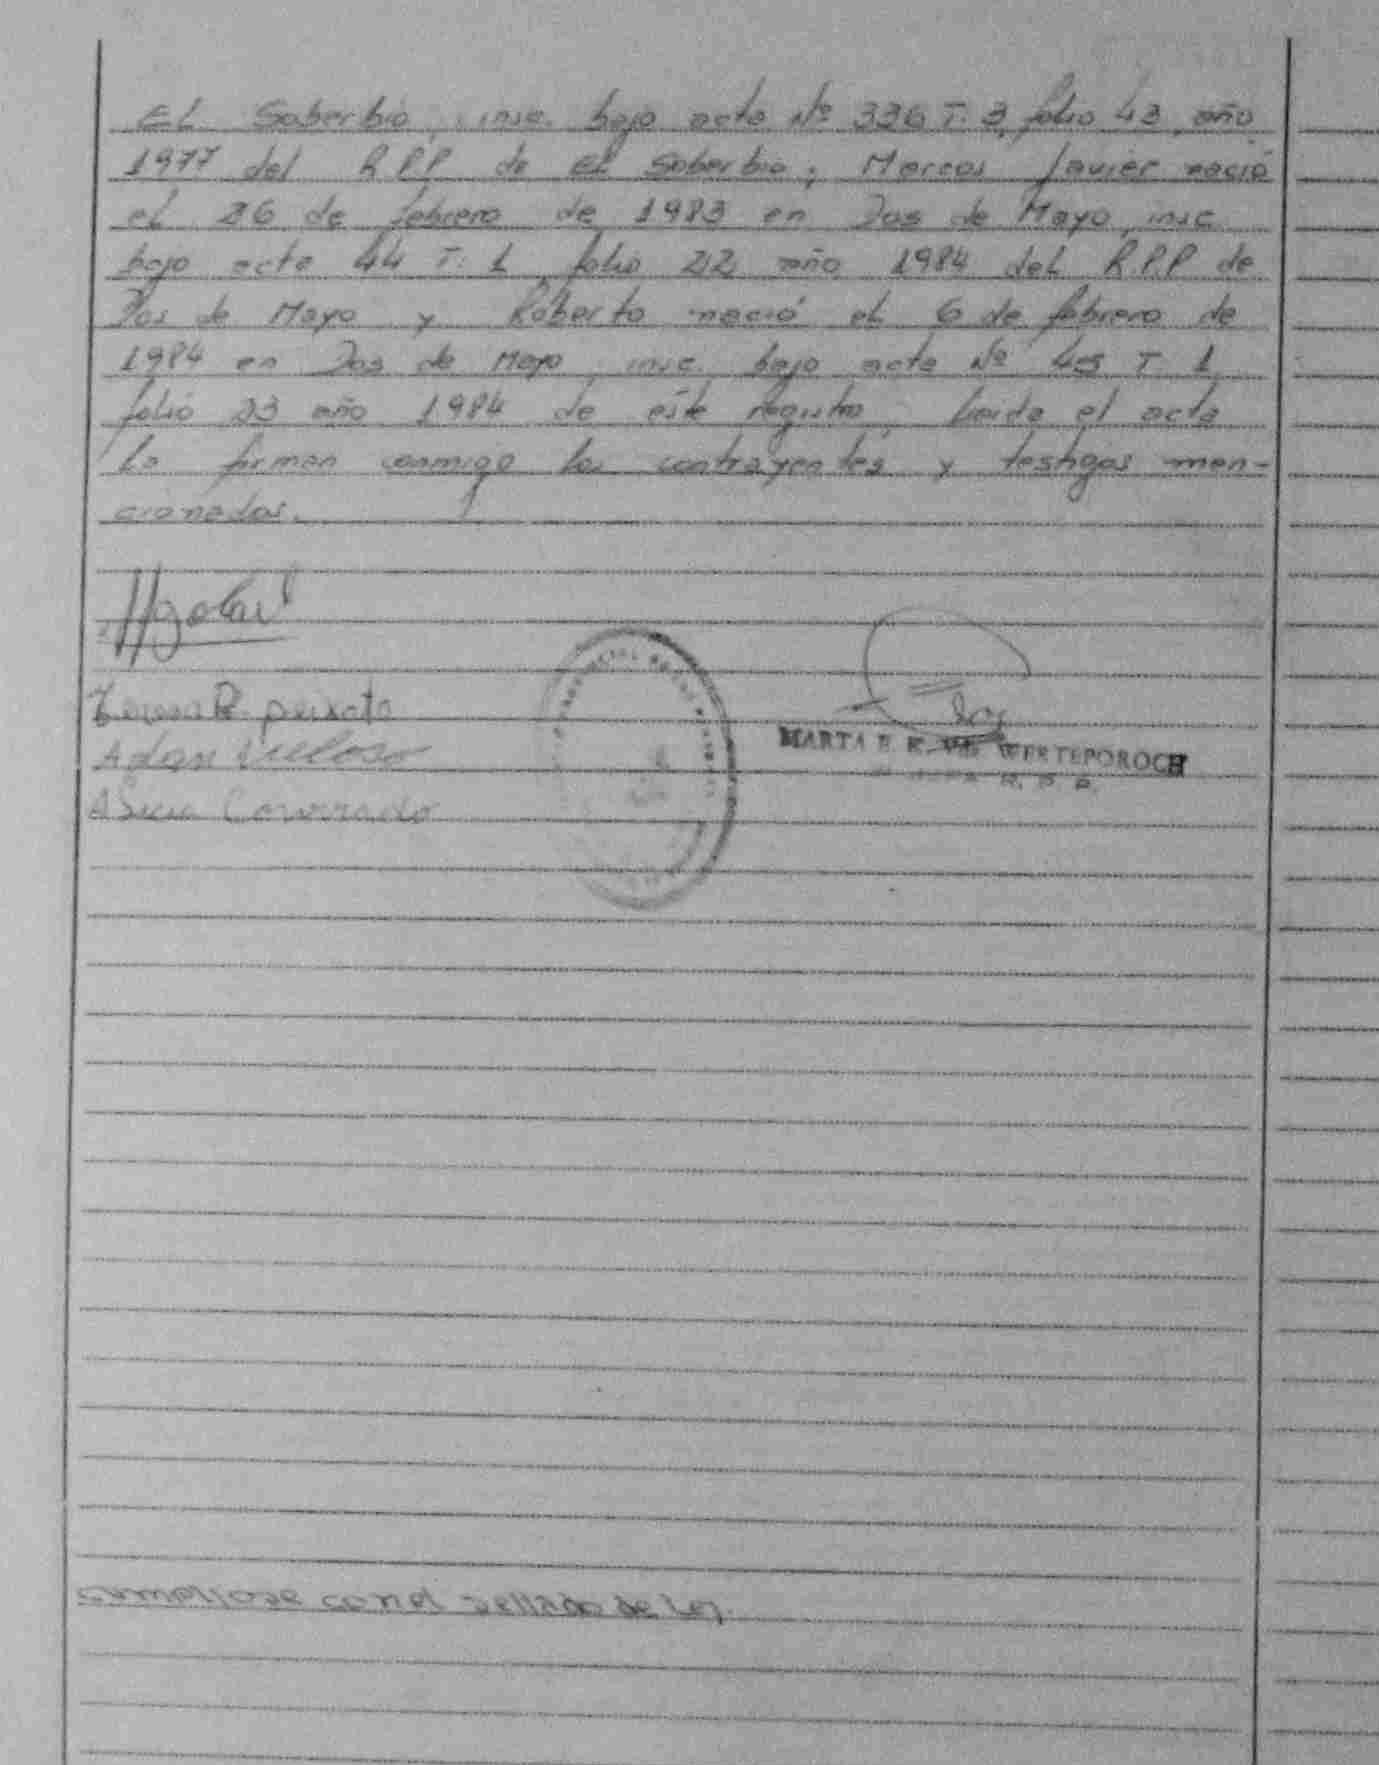 EL Soberbio, insc. bajo acta Nº 336 T. 3, folio 43, año
1977 del R.P.P. de EL Soberbio; Marcos Javier nació
el 26 de febrero de 1983 en Dos de Mayo, insc
bajo acta 44 T. 1 folio 22 año 1984 del R.P.P de
Dos de Mayo y Roberto nació el 6 de febrero de
1984 en Dos de Mayo, insc. bajo acta Nº 45 T 1
folio 23 año 1984 de éste registro. Leida el acta
la firman conmigo los contrayentes y testigos men-
cionados.
peixoto
Adan Veloso
MARTA E. K. DE WERTEPOROCH
R. P. P.
cumpliose con el sellado de Ley.